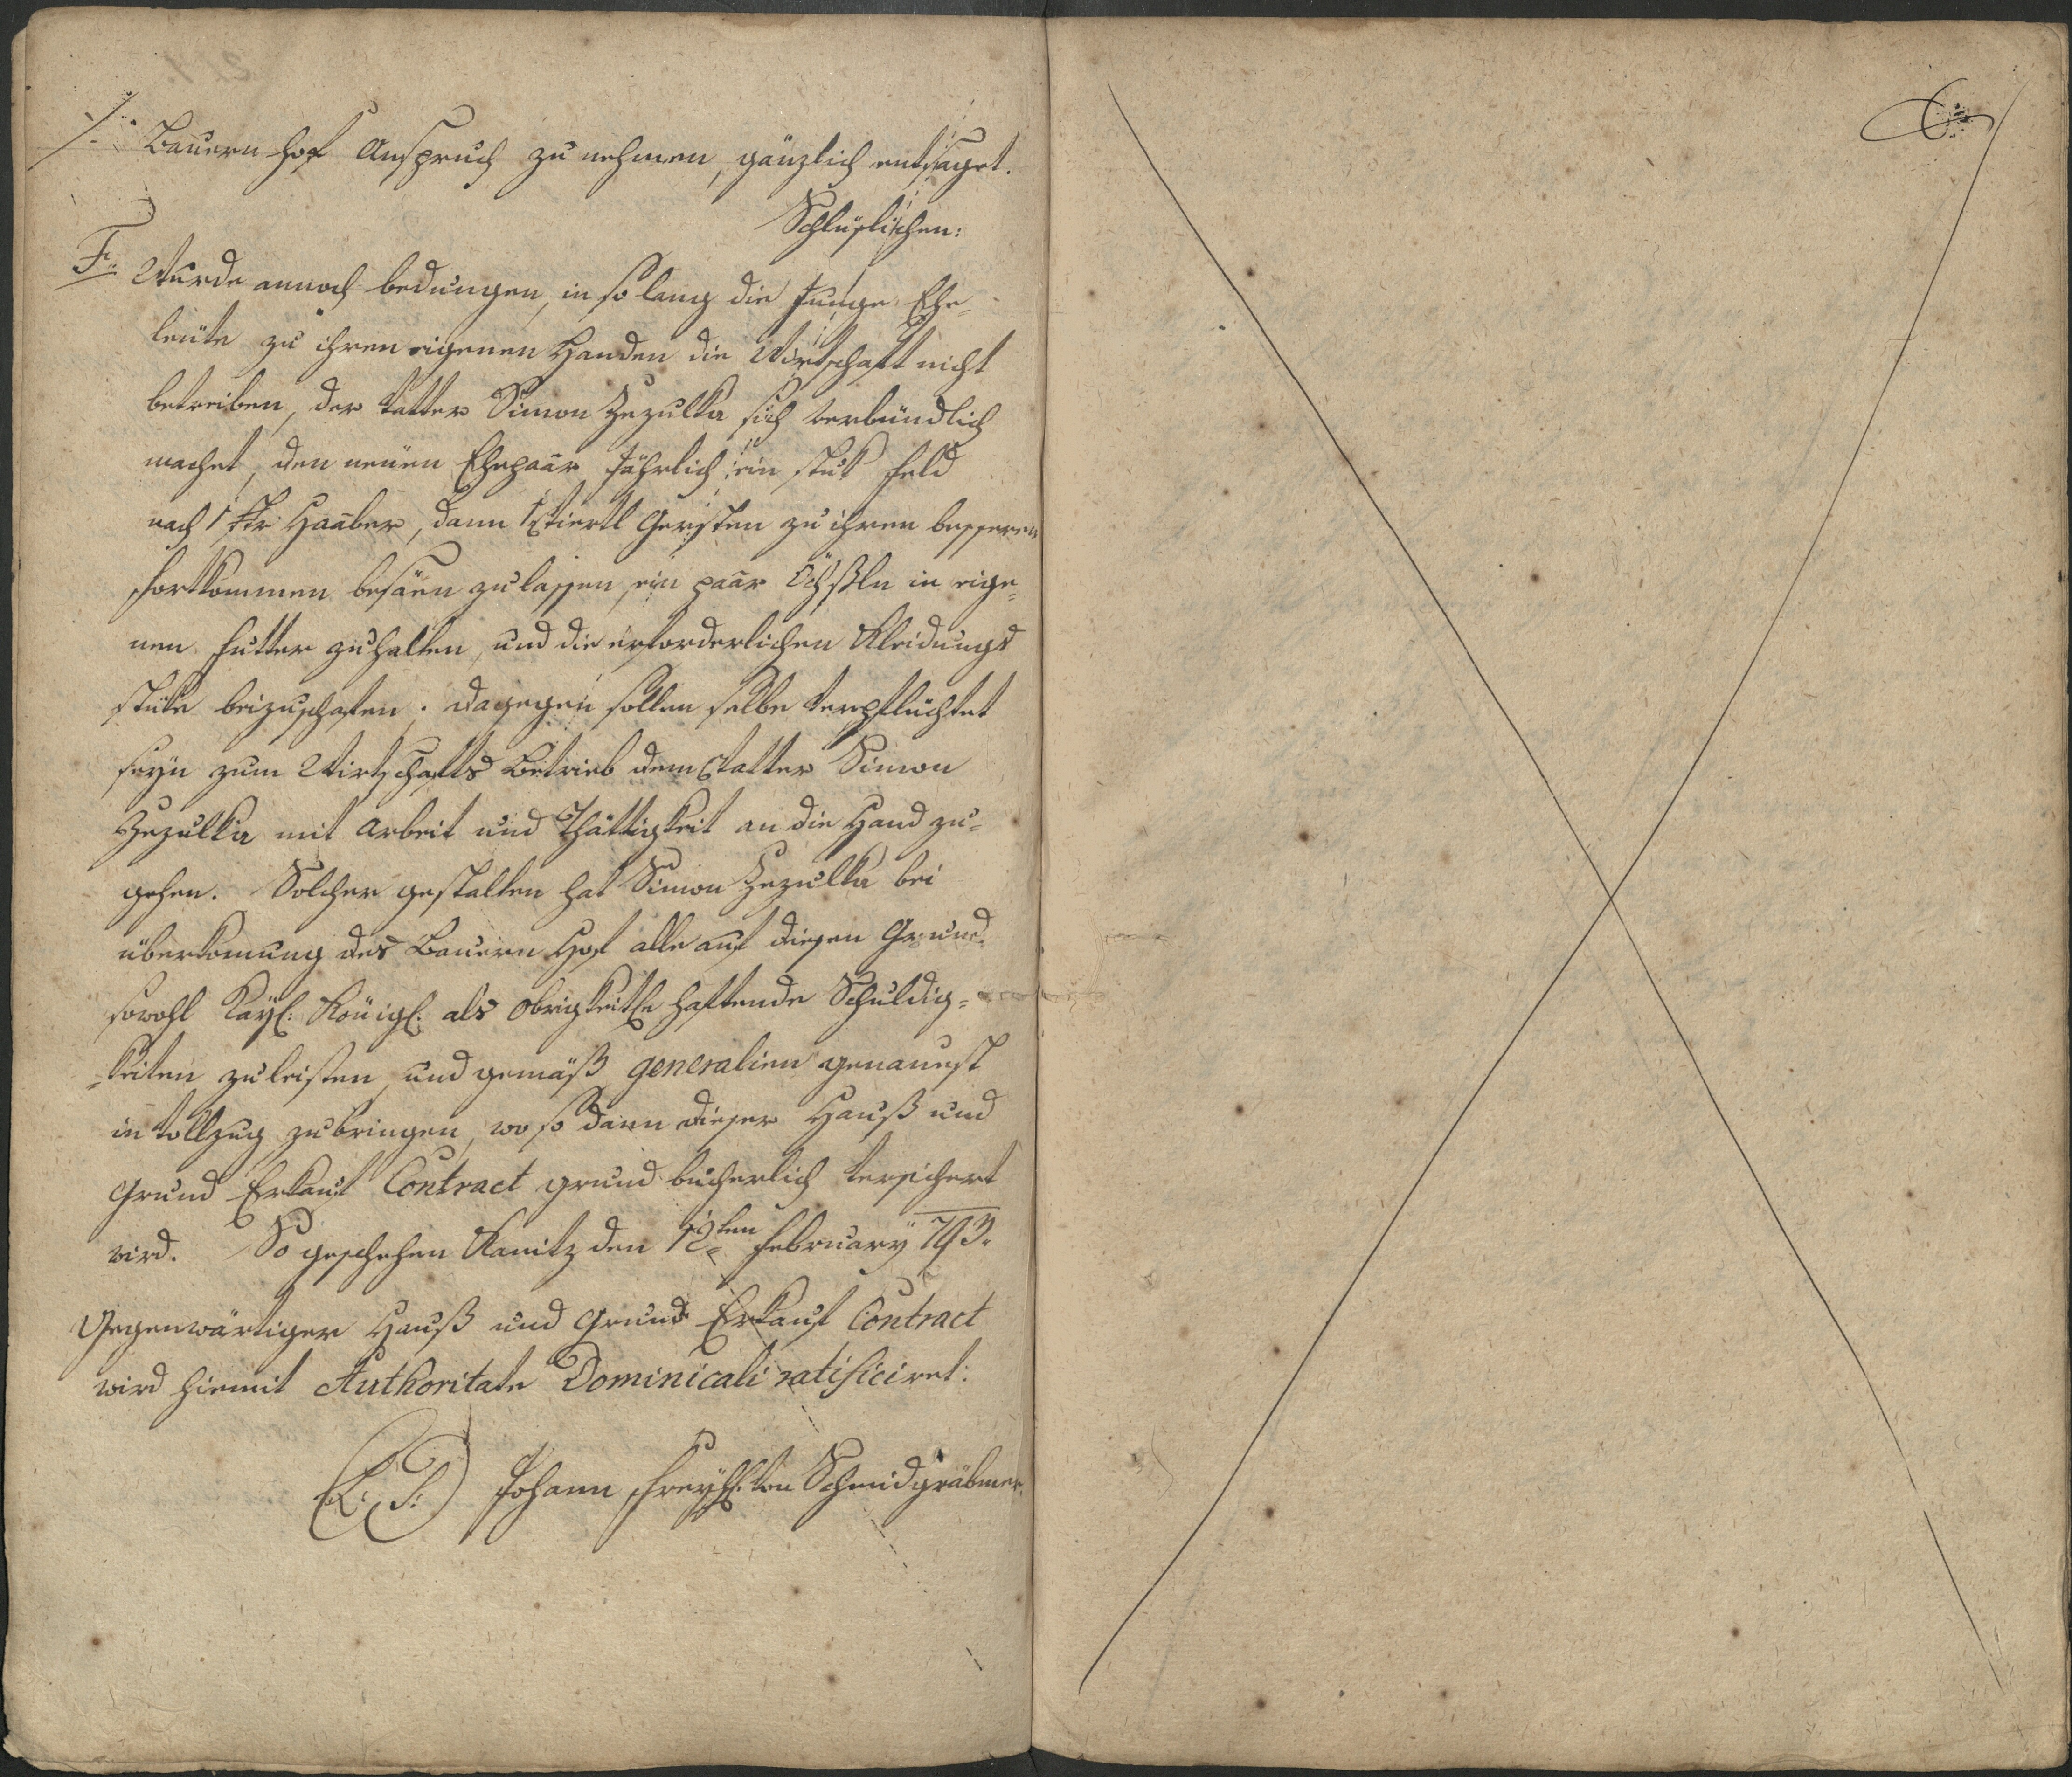 /: Bauern hof Anspruch zu nehmen, gänzlich entsaget.
Schlüslichen:
F: Wurde annoch bedungen, in so lang die Junge Ehe-
leüte zu ihren eigenen Handen die Wirtschaft nicht
betreiben, der Vatter Simon Zezulka sich verbündlich
machet, den neüen Ehepaar Jährlich ein stuk Feld
nach 1 Haaber, dann 1 Viertl Gersten zu ihren besseren
Fortkommen besäen zu lassen, ein paar Öchßln in eige=
nen Futter zu halten, und die erforderlichen Kleidungs
stüke beizuschafen. Dagegen sollen selbe verpflüchtet
seyn zum Wirtschafts Betrieb dem Vatter Simon
Zezulka mit Arbeit und Thättigkeit an die Hand zu=
gehen. Solcher gestalten hat Simon Zezulka bei
überkomung des Bauern Hof alle auf diesen Grund
sowohl Kayl: Königl: als Obrigkeitle haftende Schuldig=
=keiten zu leisten, und gemäß generalien genauest
in Vollzug zu bringen, wo so dann dieser Hauß und
Grund Erkauf Contract grund bücherlich versichert
wird. So geschehen Kanitz den 12ten February 793.
Gegenwärtiger Hauß und Grund Erkauf Contract
wird hiemit Authoritate Dominicali ratificiret:
(L: S:) Johann Freyh: von Schmidgräbner